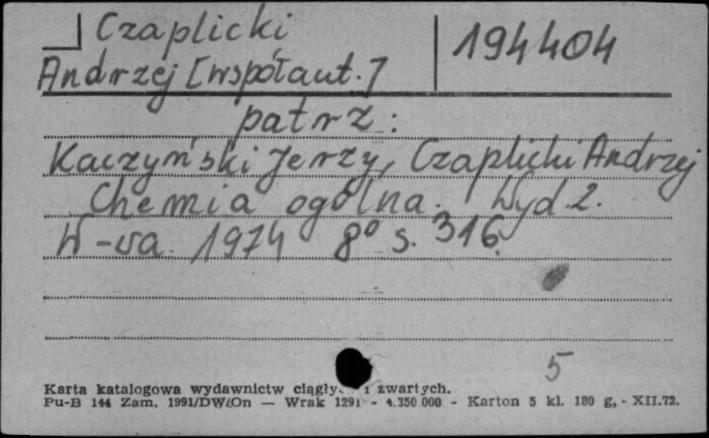 Czaplicki
194404
Andrzej [współaut.]
patrz:
Kaczyński Jerzy, Czaplicki Andrzej
Chemia ogólna. Wyd. 2.
W-wa 1974 8° s. 316.
5
Karta katalogowa wydawnictw ciągły i zwartych.
Pu-B 144 Zam. 1991/DW/On — Wrak 1291 - 4.350.000 - Karton 5 kl. 180 g, - XII.72.